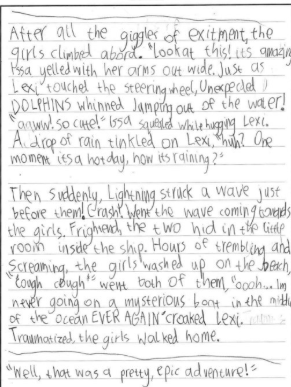 After all the giggles of exitment, the
girls climbed abord. "Look at this! its amazing
Issa yelled with her arms out wide. Just as
Lexi touched the steering wheel, Unexpected
DOLPHINS whinned Jumping out of the water!
"awww! so cute!" Issa squealed while hugging Lexi.
A drop of rain tinkled on Lexi, "huh? One
moment its a hot day, now its raining?"
Then suddenly, Lightning struck a wave just
before them! Crash! Went the wave coming towards
the girls. Frightend, the two hid in the little
room inside the ship. Hours of trembling and
Screaming, the girls washed up on the beach,
"Cough cough" went both of them, "oooh... Im
never going on a mysterious boat in the middl
of the ocean EVER AGAIN" croaked Lexi.
Traumatized, the girls walked home.
"Well, that was a pretty, epic adventure!"